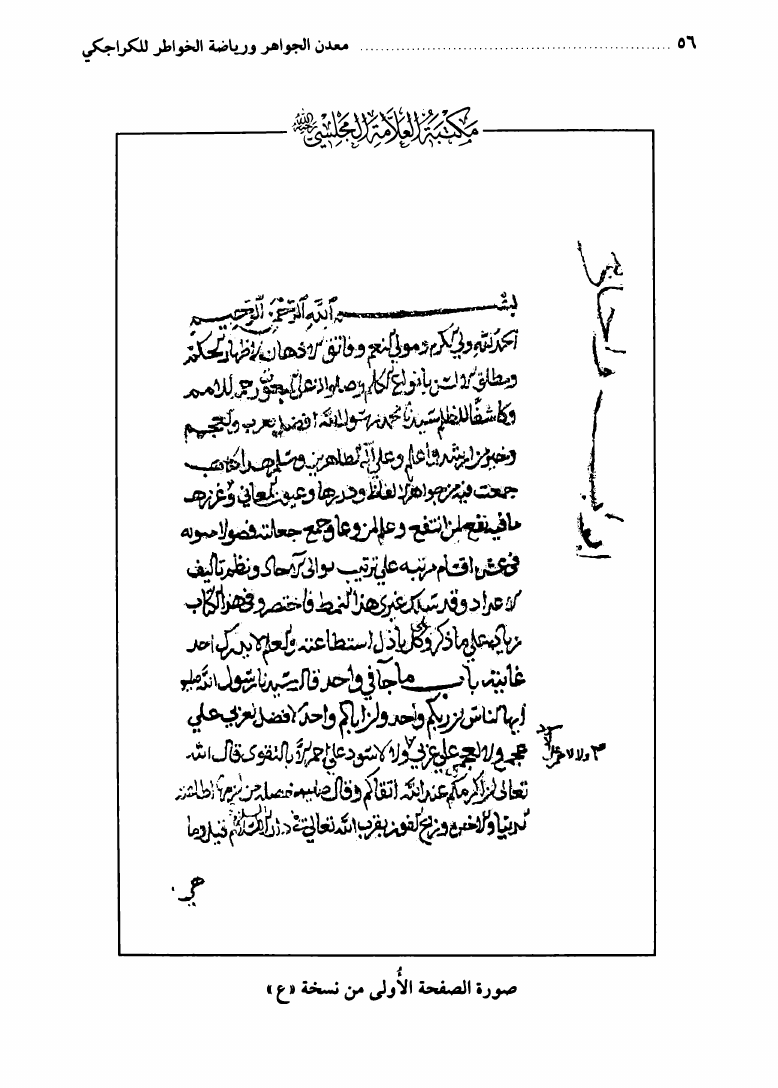 ٥٦ ........................................................ معدن الجواهر ورياضة الخواطر للكراجكي
مكتبة العلامة المجلسي
بسم الله الرحمن الرحيم
الحمد لله ولي الكرم ومولي النعم وفاتق الاذهان لاظهار الحكم
ومطلق الالسن بانواع الكلم وصلواته على المبعوث رحمة للامم
وكاشفا للظلم سيدنا محمد رسول الله افضل العرب والعجم
وخير من ارشد وعلم وعلى آله الطاهرين وسلم هذا كتاب
جمعت فيه من جواهر الالفاظ ودررها وعيون المعاني وغررها
ما فيه نفع لمن انتفع وعلم لمن وعا وجمع جعلته فصولا مبوبه
في عشر اقسام مرتبه على ترتيب توالي الاحاد ونظم تأليف
الاعداد وقد سلك غيري هذا النمط فاختصر وفي هذا الكتاب
زياده على ما ذكر وكل باذل استطاعته والعلم لا يدرك احد
غايته باب ما جاء في واحد قال سيدنا رسول الله
ايها الناس ان ربكم واحد وان اباكم واحد لا فضل لعربي على
عجمي ولا لعجمي على عربي ولا لاسود على احمر الا بالتقوى قال الله
تعالى ان اكرمكم عند الله اتقاكم وقال خصله من لزمها اطاعته
الدنيا والاخرة وربح الفوز بقرب الله تعالى في دار السلام قيل وما
هي
باب
صورة الصفحة الأُولى من نسخة «ع»